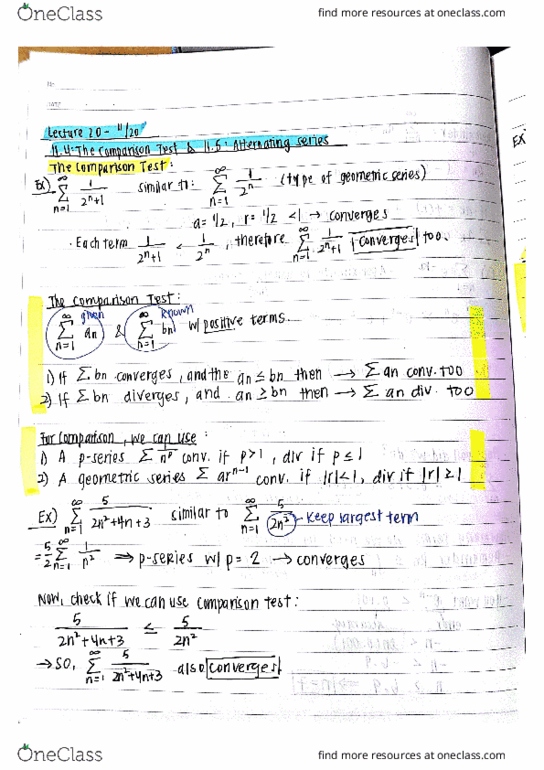 OneClass
find more resources at oneclass.com
Lecture 20 - 11/20
11.4: The Comparison Test & 11.5: Alternating series
The Comparison Test:
Ex) ∞ Σ n=1 1/(2ⁿ+1) similar to: ∞ Σ n=1 1/2ⁿ (type of geometric series)
a = 1/2, r = 1/2 < 1 → converges
· Each term 1/(2ⁿ+1) < 1/2ⁿ, therefore ∞ Σ n=1 1/(2ⁿ+1) converges too.
EX
The Comparison Test:
given known
∞ Σ n=1 an & ∞ Σ n=1 bn w/ positive terms.
1) If Σ bn converges, and the an ≤ bn then → Σ an conv. too
2) If Σ bn diverges, and an ≥ bn then → Σ an div. too
For Comparison, we can use:
1) A p-series Σ 1/nᵖ conv. if p>1, div if p≤1
2) A geometric series Σ arⁿ⁻¹ conv. if |r|<1, div if |r|≥1
Ex) ∞ Σ n=1 5/(2n²+4n+3) similar to ∞ Σ n=1 5/2n² - keep largest term
= 5/2 ∞ Σ n=1 1/n² ⇒ p-series w/ p = 2 → converges
Now, check if we can use comparison test:
5/(2n²+4n+3) ≤ 5/2n²
→ So, ∞ Σ n=1 5/(2n²+4n+3) also converges
OneClass
find more resources at oneclass.com